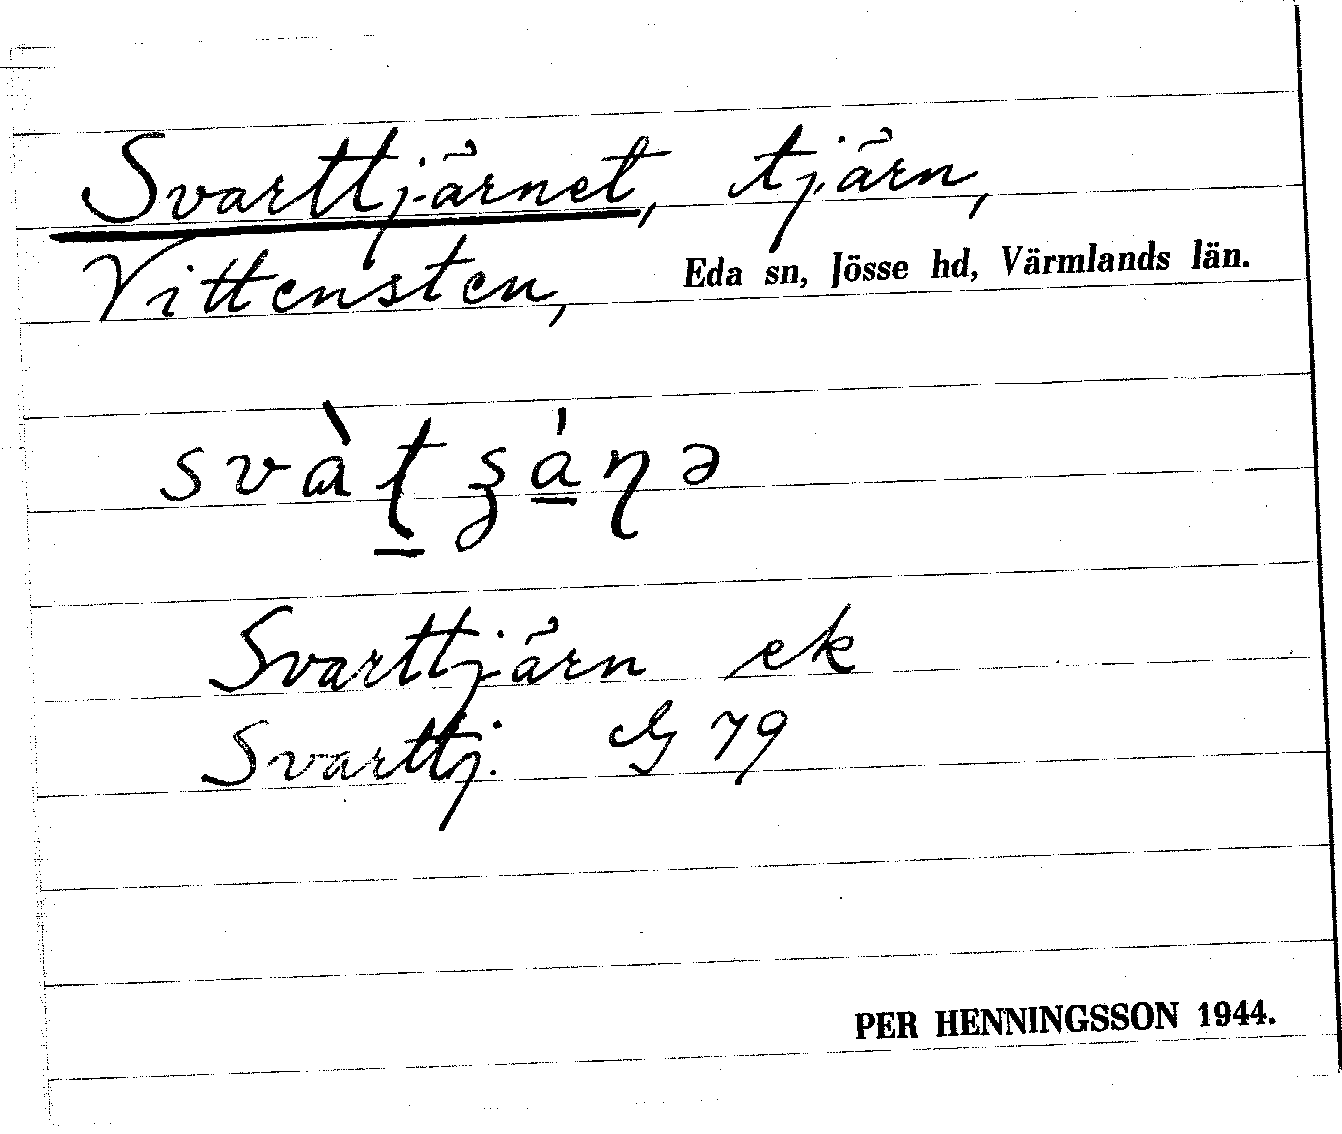 Svarttjärnet, tjärn,
Vittensten, Eda sn, Jösse hd, Värmlands län.
svàt̠ʂá̠ɳə
Svarttjärn ek
Svarttj. G 79
PER HENNINGSSON 1944.